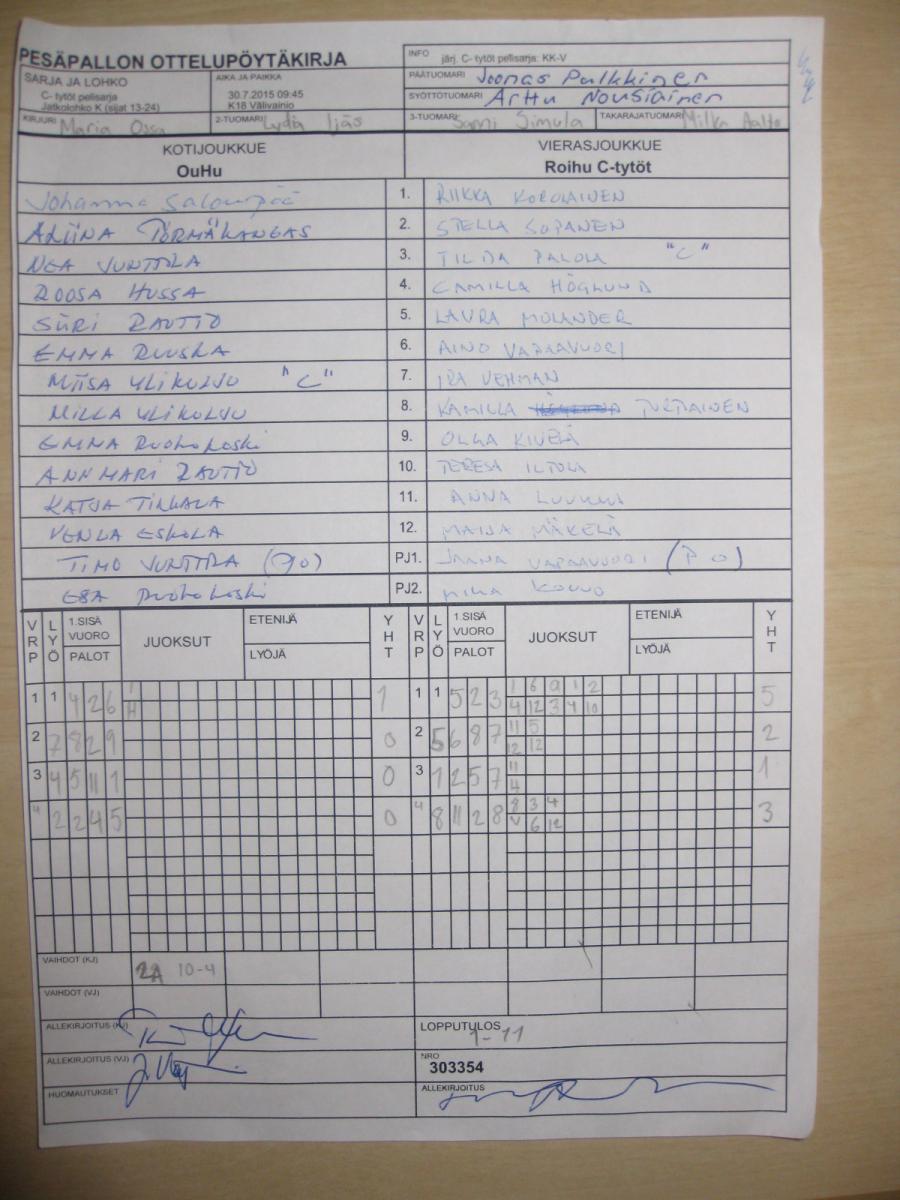 PESÄPALLON OTTELUPÖYTÄKIRJA
INFO järj. C- tytöt pelisarja: KK-V
SARJA JA LOHKO
C- tytöt pelisarja
Jatkolohko K (sijat 13-24)
AIKA JA PAIKKA
30.7.2015 09:45
K18 Välivainio
PÄÄTUOMARI Joonas Pulkkinen
SYÖTTÖTUOMARI Arttu Nousiainen
KIRJURI Maria Ossa 2-TUOMARI Lydia Ijäs 3-TUOMARI Sanni Simula TAKARAJATUOMARI Milka Aalto
KOTIJOUKKUE VIERASJOUKKUE
OuHu Roihu C-tytöt
Johanna Salonpää 1. RIIKKA KOROLAINEN
ALIINA TÖRMÄKANGAS 2. STELLA SOPANEN
NEA JUNTTILA 3. TILDA PALOLA "C"
ROOSA HUSSA 4. CAMILLA HÖGLUND
SIIRI RAUTIO 5. LAURA MOLANDER
EMMA RUUSKA 6. AINO VAPAAVUORI
MIISA YLIKULJU "C" 7. IRA VEHMAN
MILLA YLIKULJU 8. KAMILLA TURTIAINEN
EMMA RUOHOKOSKI 9. OLGA KIVELÄ
ANNMARI RAUTIO 10. TERESA ILTOLA
KATJA TIKKALA 11. ANNA
VENLA ESKOLA 12. MAIJA MÄKELÄ
TIMO JUNTTILA (PJ1. JAANA VAPAAVUORI (PO)
ESA RUOHOKOSKI PJ2. MIKA KOUVO
VRP LYÖ 1.SISÄ VUORO PALOT JUOKSUT ETENIJÄ LYÖJÄ YHT VRP LYÖ 1.SISÄ VUORO PALOT JUOKSUT ETENIJÄ LYÖJÄ YHT
1 1 4 2 6 1 1 1 1 5 2 3 1 6 9 1 2 5
H 4 12 3 4 10
2 7 8 2 9 0 2 5 6 8 7 11 5 2
12 12
3 4 5 11 1 0 3 1 2 5 7 11 1
4
4 2 2 4 5 0 4 8 11 2 8 8 3 4 3
V 6 12
VAIHDOT (KJ) 2A 10-4
VAIHDOT (VJ)
ALLEKIRJOITUS (KJ) LOPPUTULOS 1-11
ALLEKIRJOITUS (VJ) NRO
303354
HUOMAUTUKSET ALLEKIRJOITUS